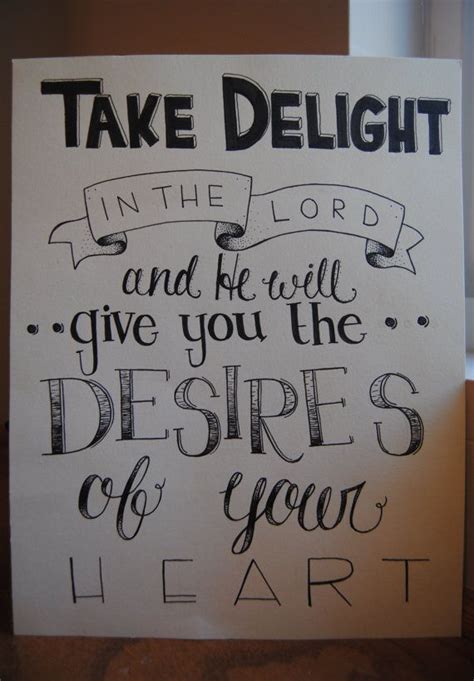 TAKE DELIGHT
IN THE LORD
and He will
give you the
DESIRES
of your
HEART